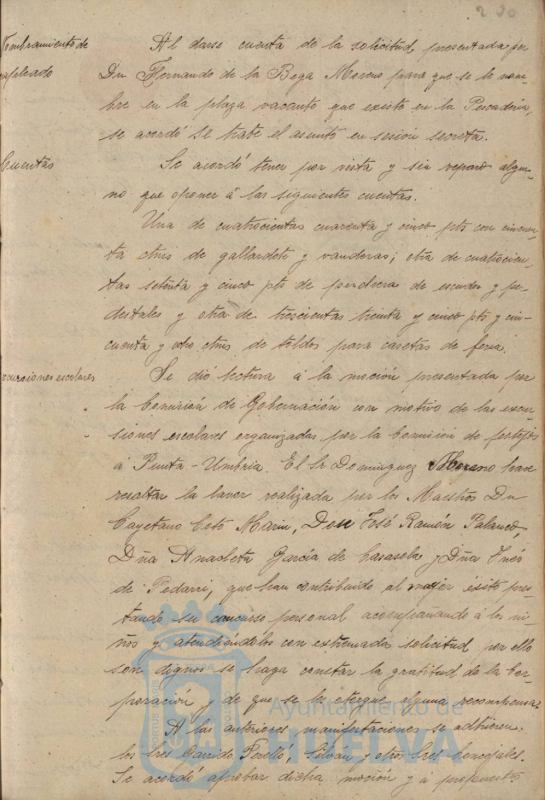 230
Nombramiento de
empleado
Al darse cuenta de la solicitud presentada por
Dn Fernando de la Bega Moreno para que se le nom-
bre en la plaza vacante que existe en la Pescaderia,
se acordó se trate el asunto en sesion secreta.
Cuentas
Se acordó tener por vista y sin reparo algu-
no que oponer á las siguientes cuentas.
Una de cuatrocientas cuarenta y cinco pts con cincuen-
ta ctms de gallardete y vanderas; otra de cuatrocien-
tas setenta y cinco pts de escudos y pe-
destales y otra de trescientas treinta y cinco pts y cin-
cuenta y ocho ctms. de toldos para casetas de feria.
Excursiones escolares
Se dió lectura á la moción presentada por
la Comisión de Gobernación con motivo de las excur-
siones escolares organizadas por la Comision de festejos
á Punta-Umbria. El Sr Dominguez Moreno hace
resaltar la lavor realizada por los Maestros Dn
Cayetano Marin, Don José Ramón Palanco,
Dña Anacleta García de Casasola y Dña Inés
de Pedarri, que han contribuido al mejor éxito pres-
tando su concurso personal acompañando á los ni-
ños y atendiéndolos con extremada solicitud por ello
son dignos se haga constar la gratitud de la Cor-
poración y de que se le otorgue alguna recompensa.
A las anteriores manifestaciones se adhieren
los Sres Garrido Perelló, y otros Sres Concejales.
Se acordó aprobar dicha moción y á propuesta
Ayuntamiento de
HUELVA